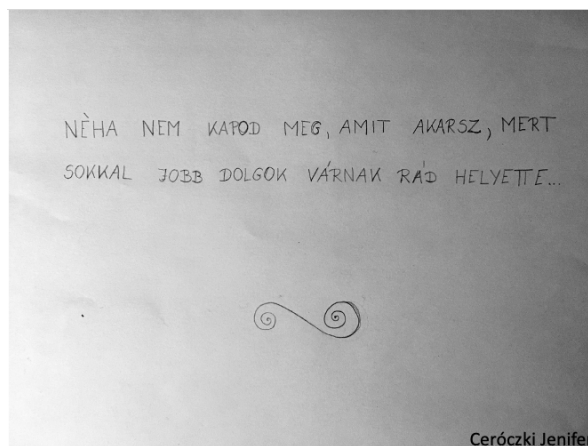 NÈHA NEM KAPOD MEG, AMIT AKARSZ, MERT
SOKKAL JOBB DOLGOK VÁRNAK RÁD HELYETTE...
Ceróczki Jenife